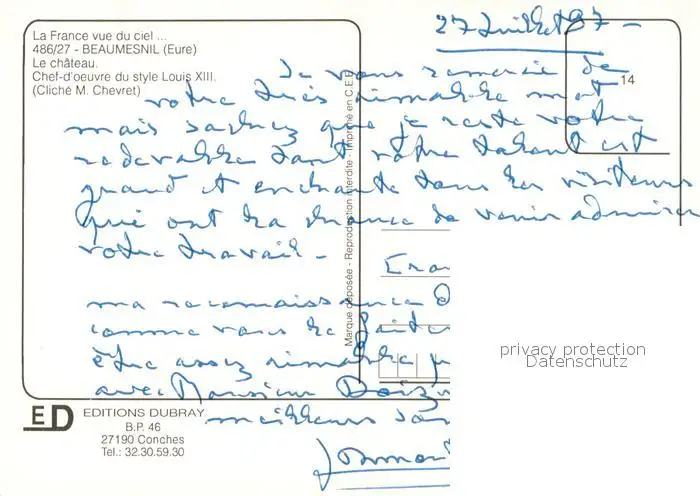 La France vue du ciel ...
486/27 - BEAUMESNIL (Eure)
Le château.
Chef-d'oeuvre du style Louis XIII.
(Cliché M. Chevret)
27 Juillet 97 -
14
Je vous remercie de
votre très aimable mot
mais sachez que je reste votre
redevable tant votre talent est
grand et enchante tous les visiteurs
qui ont la chance de venir admirer
votre travail -
ma reconnaissance
comme vous le faites
être assez aimable
avec Monsieur
meilleurs
Marque déposée - Reproduction interdite - Imprimé en C.E.E.
ED
EDITIONS DUBRAY
B.P. 46
27190 Conches
Tel.: 32.30.59.30
privacy protection
Datenschutz